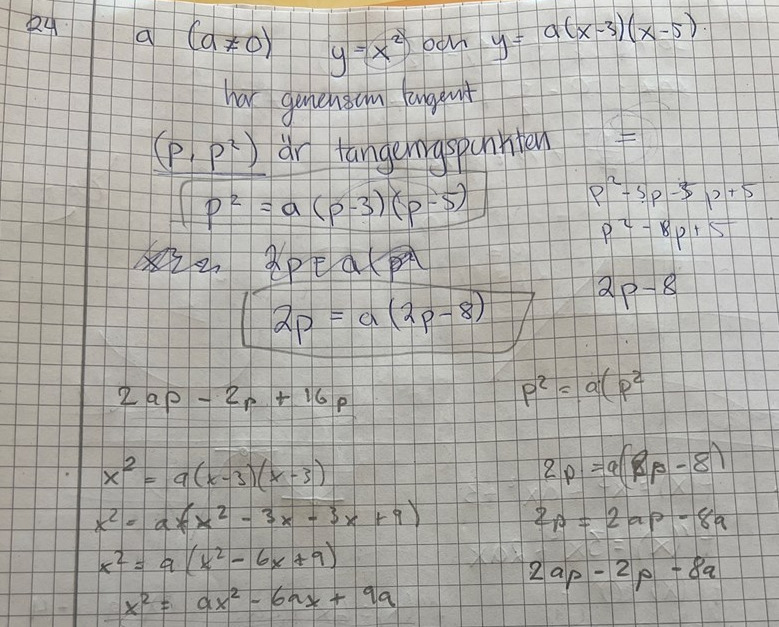 24 a (a≠0) y=x² och y= a(x-3)(x-5).
har gemensam tangent
(p, p²) är tangeringspunkten =
p² = a(p-3)(p-5)
p²-5p-3p+5
p²-8p+5
2p = a(
2p-8
2p = a(2p-8)
2ap - 2p + 16p
p² = a(p²
x² = a(x-3)(x-3)
x² = a(x² - 3x - 3x + 9)
x² = a(x² - 6x + 9)
x² = ax² - 6ax + 9a
2p = a(2p-8)
2p = 2ap - 8a
2ap - 2p - 8a